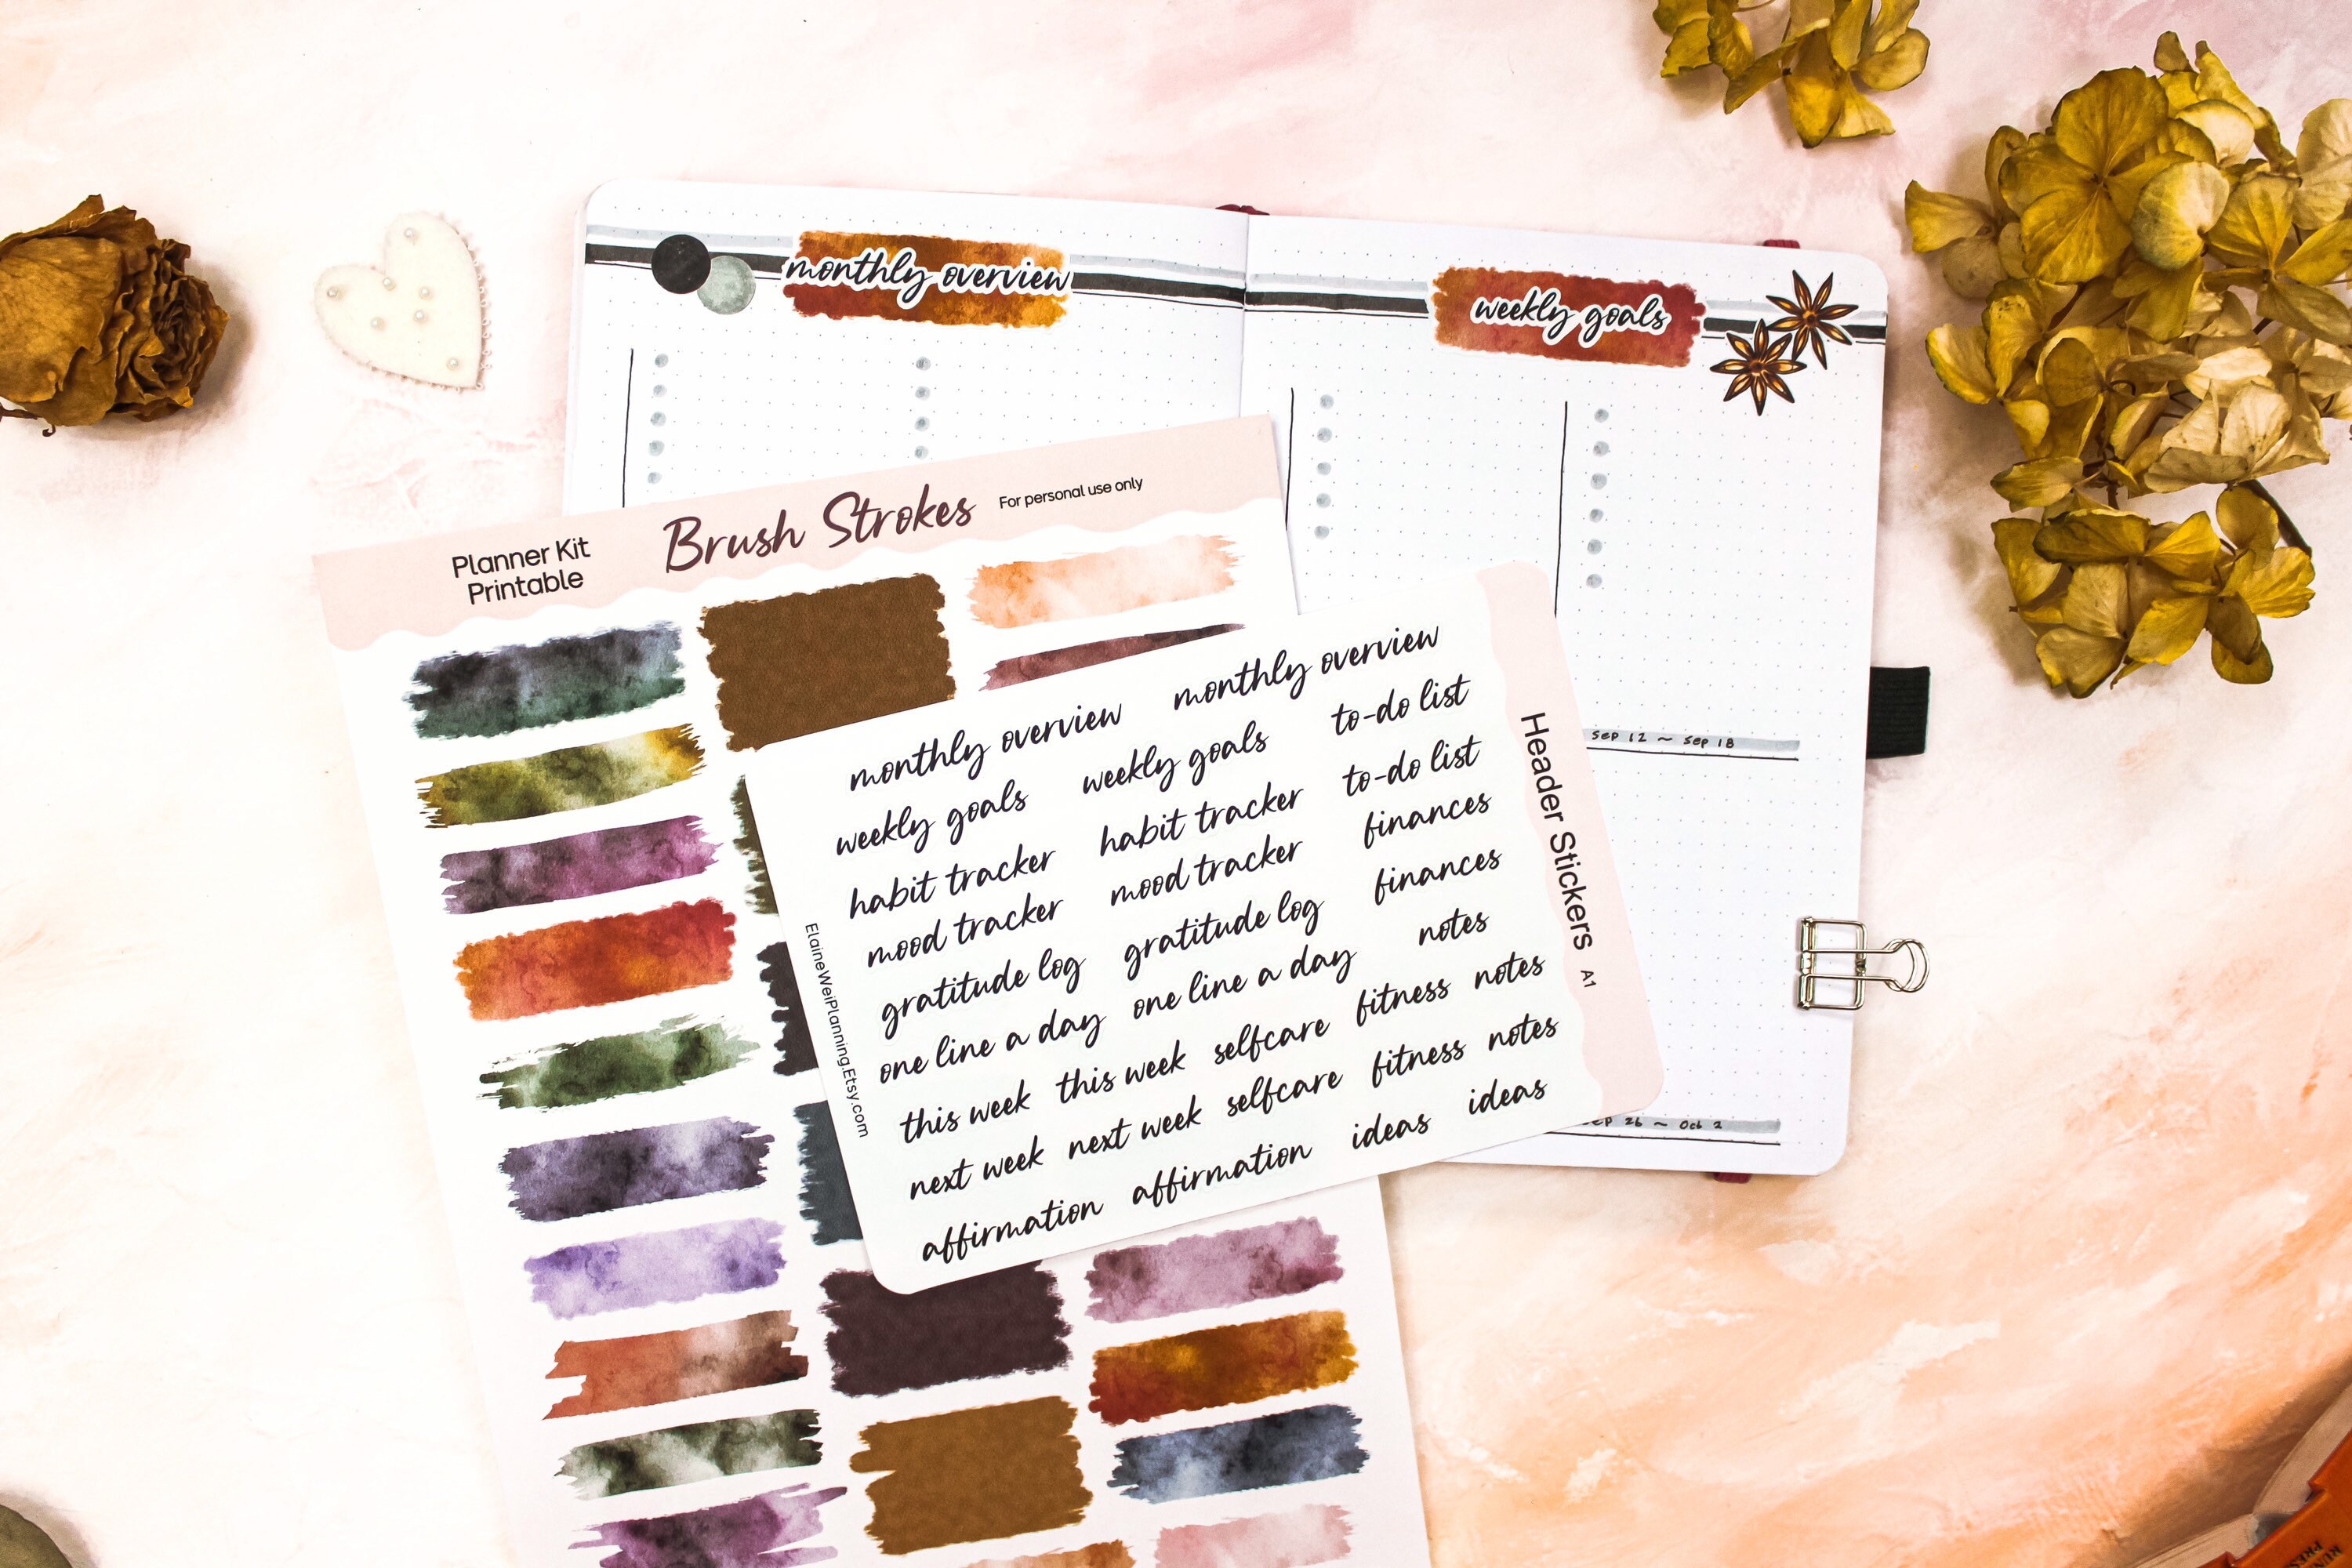 monthly overview
weekly goals
Planner Kit
Printable
Brush Strokes
For personal use only
monthly overview monthly overview
weekly goals weekly goals to-do list
habit tracker habit tracker to-do list
mood tracker mood tracker finances
gratitude log gratitude log finances
one line a day one line a day notes
this week this week selfcare fitness notes
next week next week selfcare fitness notes
affirmation affirmation ideas ideas
Header Stickers A1
ElaineWeiPlanning.Etsy.com
Sep 12 ~ Sep 18
ep 26 ~ Oct 2